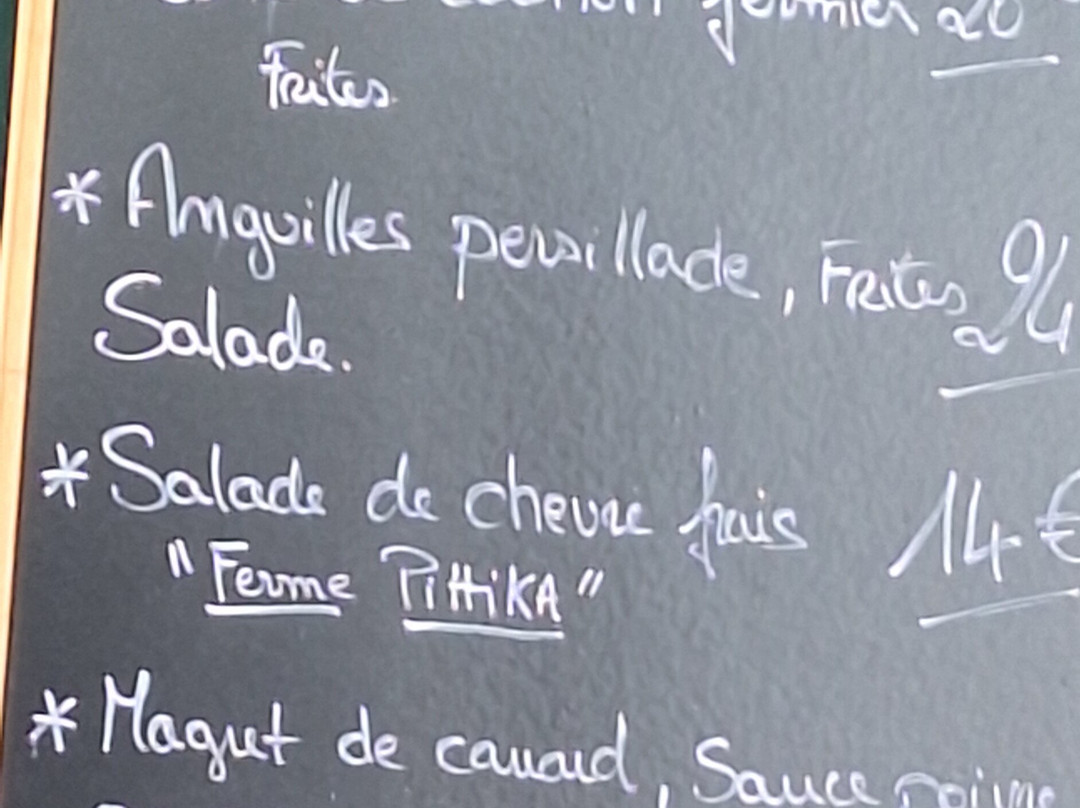 de cochon fermier 20
Frites.
* Anguilles persillade, Frites 24
Salade.
* Salade de chevre frais 14 €
" Ferme PittiKA "
* Magret de canard, Sauce poivre